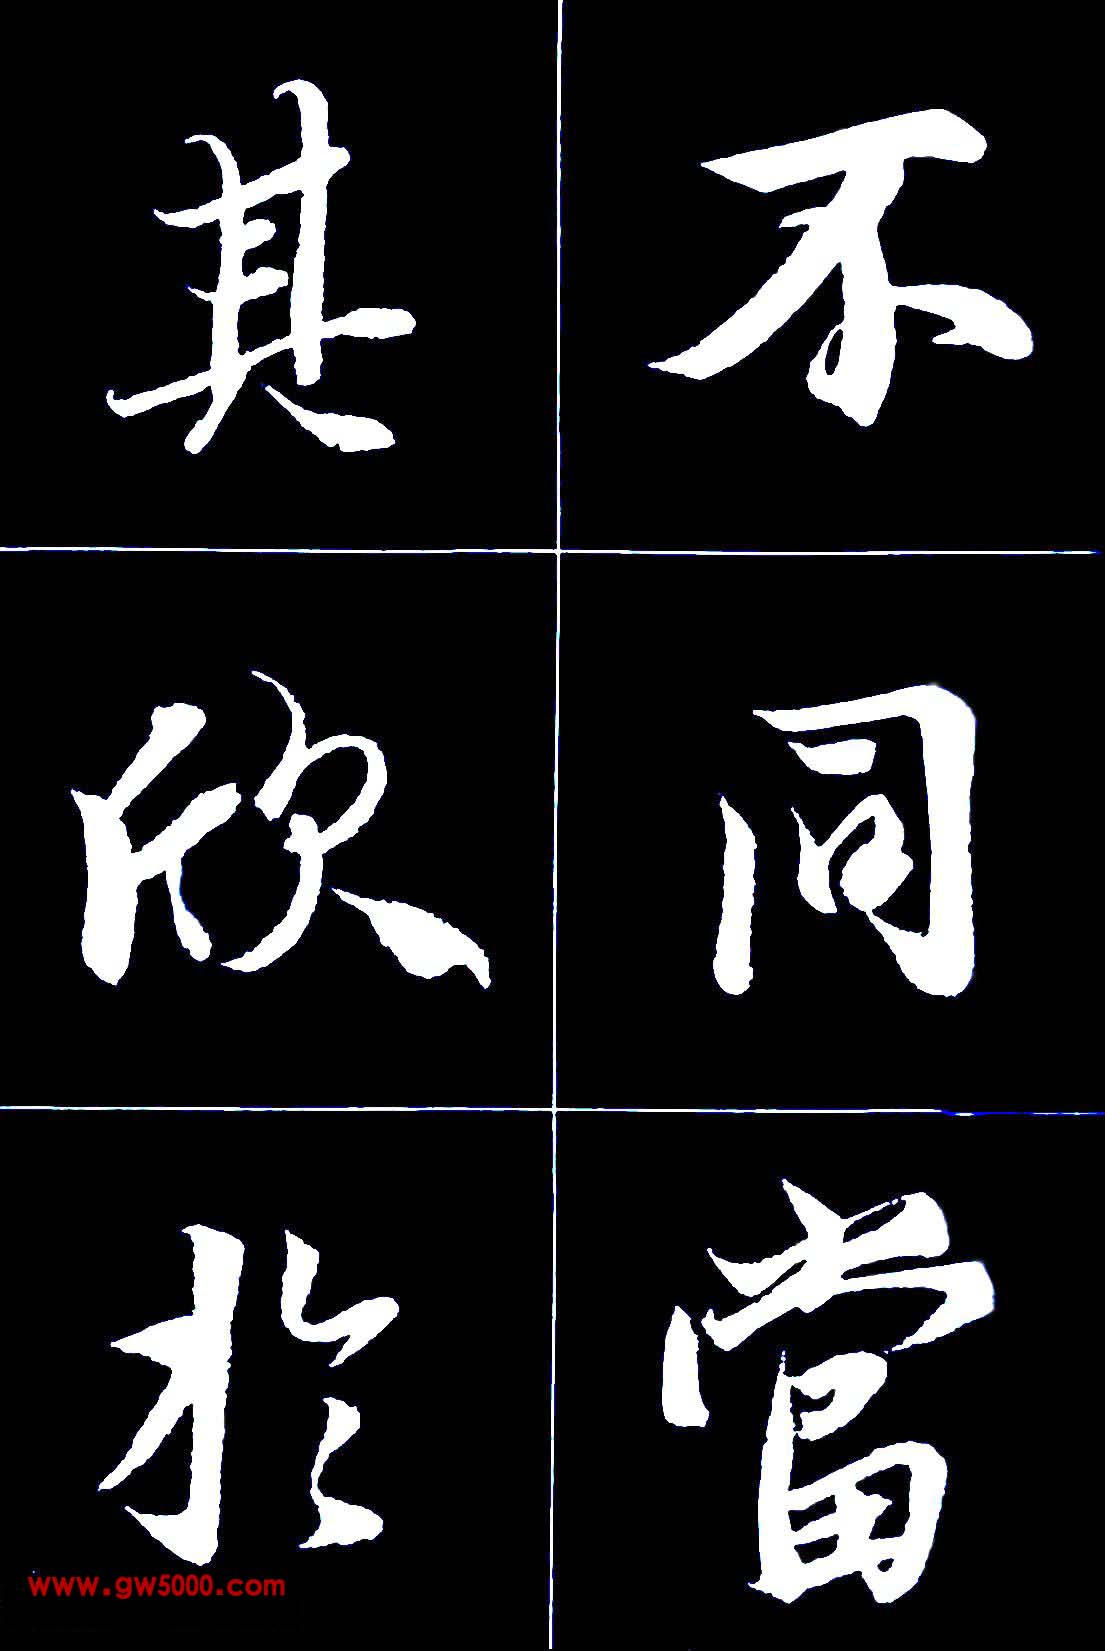 不同當
其欣於
www.gw5000.com